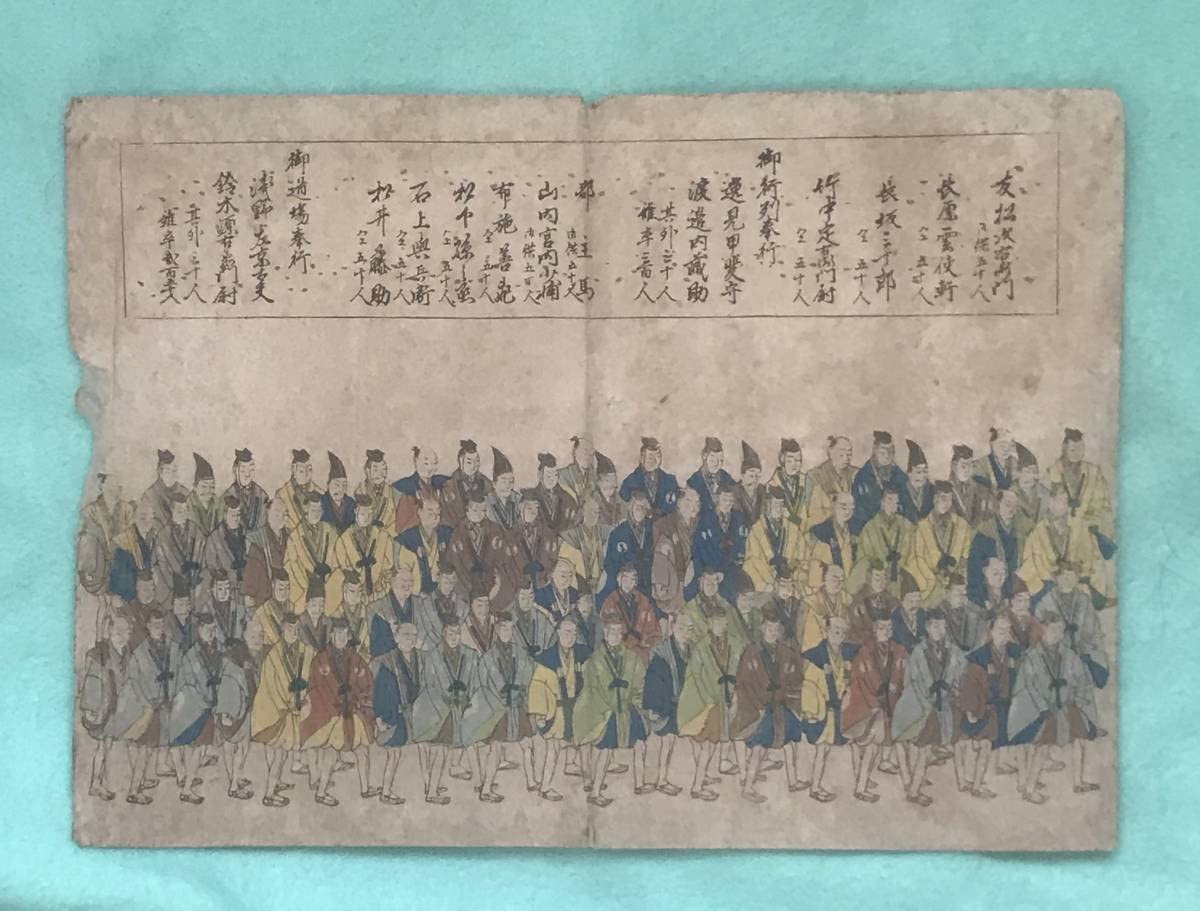 友松次右衛門
内供五十人
長屋雲伎軒
仝 五十人
長坂三十郎
仝 五十人
竹中定右衛門尉
仝 五十人
御行列奉行
逸見甲斐守
渡邉内蔵助
其外三十人
雑卒三百人
都 主馬
内供五十人
山内宮内少輔
内供五十人
布施
仝 五十人
仝 五十人
石上與兵衛
仝 五十人
松井藤助
仝 五十人
御道場奉行
浅野左京大夫
鈴木
其外三十人